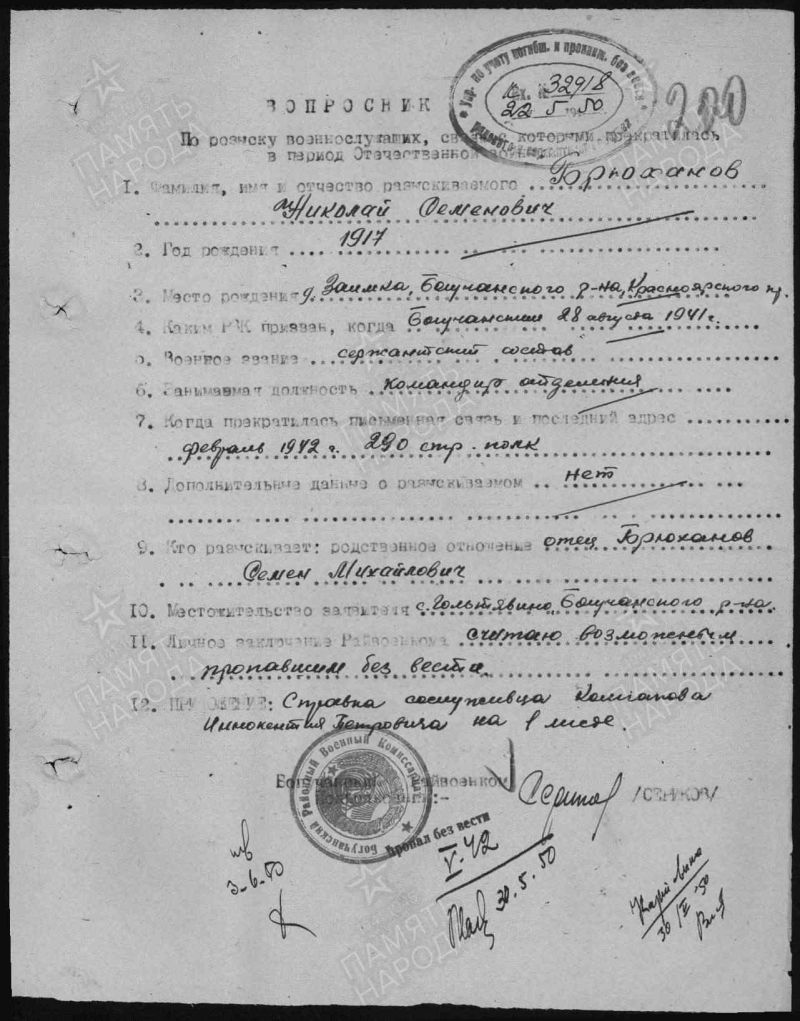 Упр. по учету погибш. и пропавш. без вести
Вх. № 32918
22 5 1950
200
ВОПРОСНИК
По розыску военнослужащих, связь с которыми прекратилась
в период Отечественной войны
1. Фамилия, имя и отчество разыскиваемого Брюханов
Николай Семенович
2. Год рождения 1917
3. Место рождения д. Заимка, Богучанского р-на, Красноярского кр.
4. Каким РВК призван, когда Богучанским 28 августа 1941 г.
5. Военное звание сержантский состав
6. Занимаемая должность командир отделения
7. Когда прекратилась письменная связь и последний адрес
февраль 1942 г. 290 стр. полк
8. Дополнительные данные о разыскиваемом нет
9. Кто разыскивает: родственное отношение отец Брюханов
Семен Михайлович
10. Местожительство заявителя с. Гольтявино, Богучанского р-на
11. Личное заключение Райвоенкома считаю возможным
пропавшим без вести
12. ПРИЛОЖЕНИЕ: Справка сослуживца
Иннокентия Петровича на 1 листе.
Богучанский Райвоенком
/СЕНИКОВ/
Богучанский Районный Военный Комиссариат
Пропал без вести
V. 42
30.5.50
3.6.50
30/V 50
ПАМЯТЬ НАРОДА
ПАМЯТЬ НАРОДА
ПАМЯТЬ НАРОДА
ПАМЯТЬ НАРОДА
ПАМЯТЬ НАРОДА
ПАМЯТЬ НАРОДА
ПАМЯТЬ НАРОДА